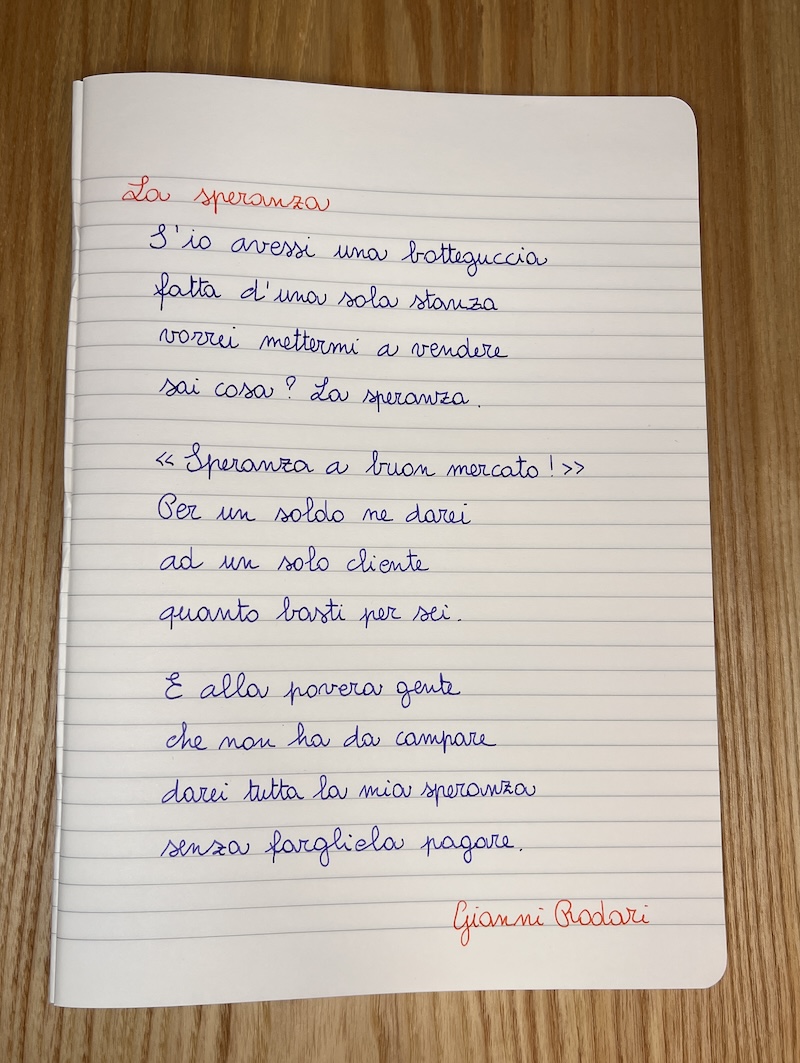 La speranza
S'io avessi una botteguccia
fatta d'una sola stanza
vorrei mettermi a vendere
sai cosa? La speranza.
«Speranza a buon mercato!»
Per un soldo ne darei
ad un solo cliente
quanto basti per sei.
E alla povera gente
che non ha da campare
darei tutta la mia speranza
senza fargliela pagare.
Gianni Rodari